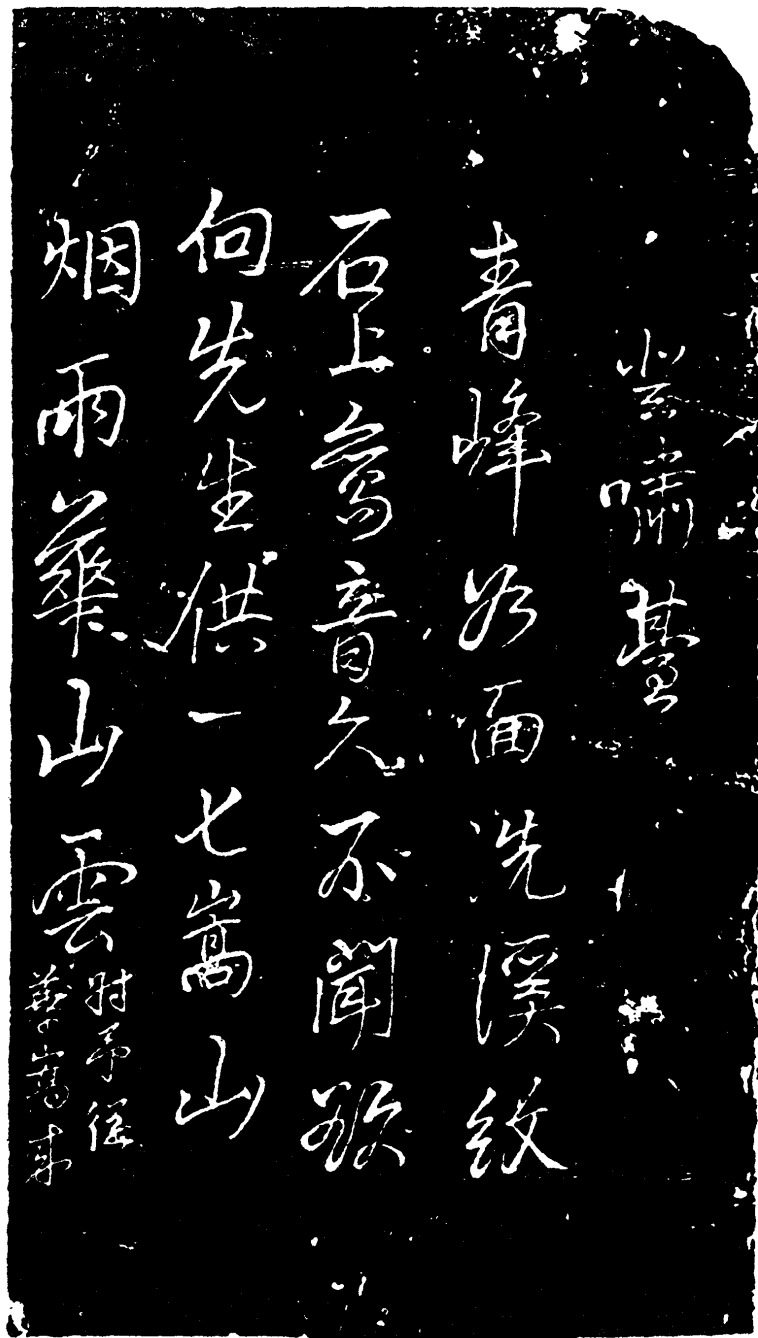 登嘯臺
青峰面洗溪紋
石上鸞音久不聞欲
向先生供一七嵩山
烟雨華山雲
時予從
華嵩來